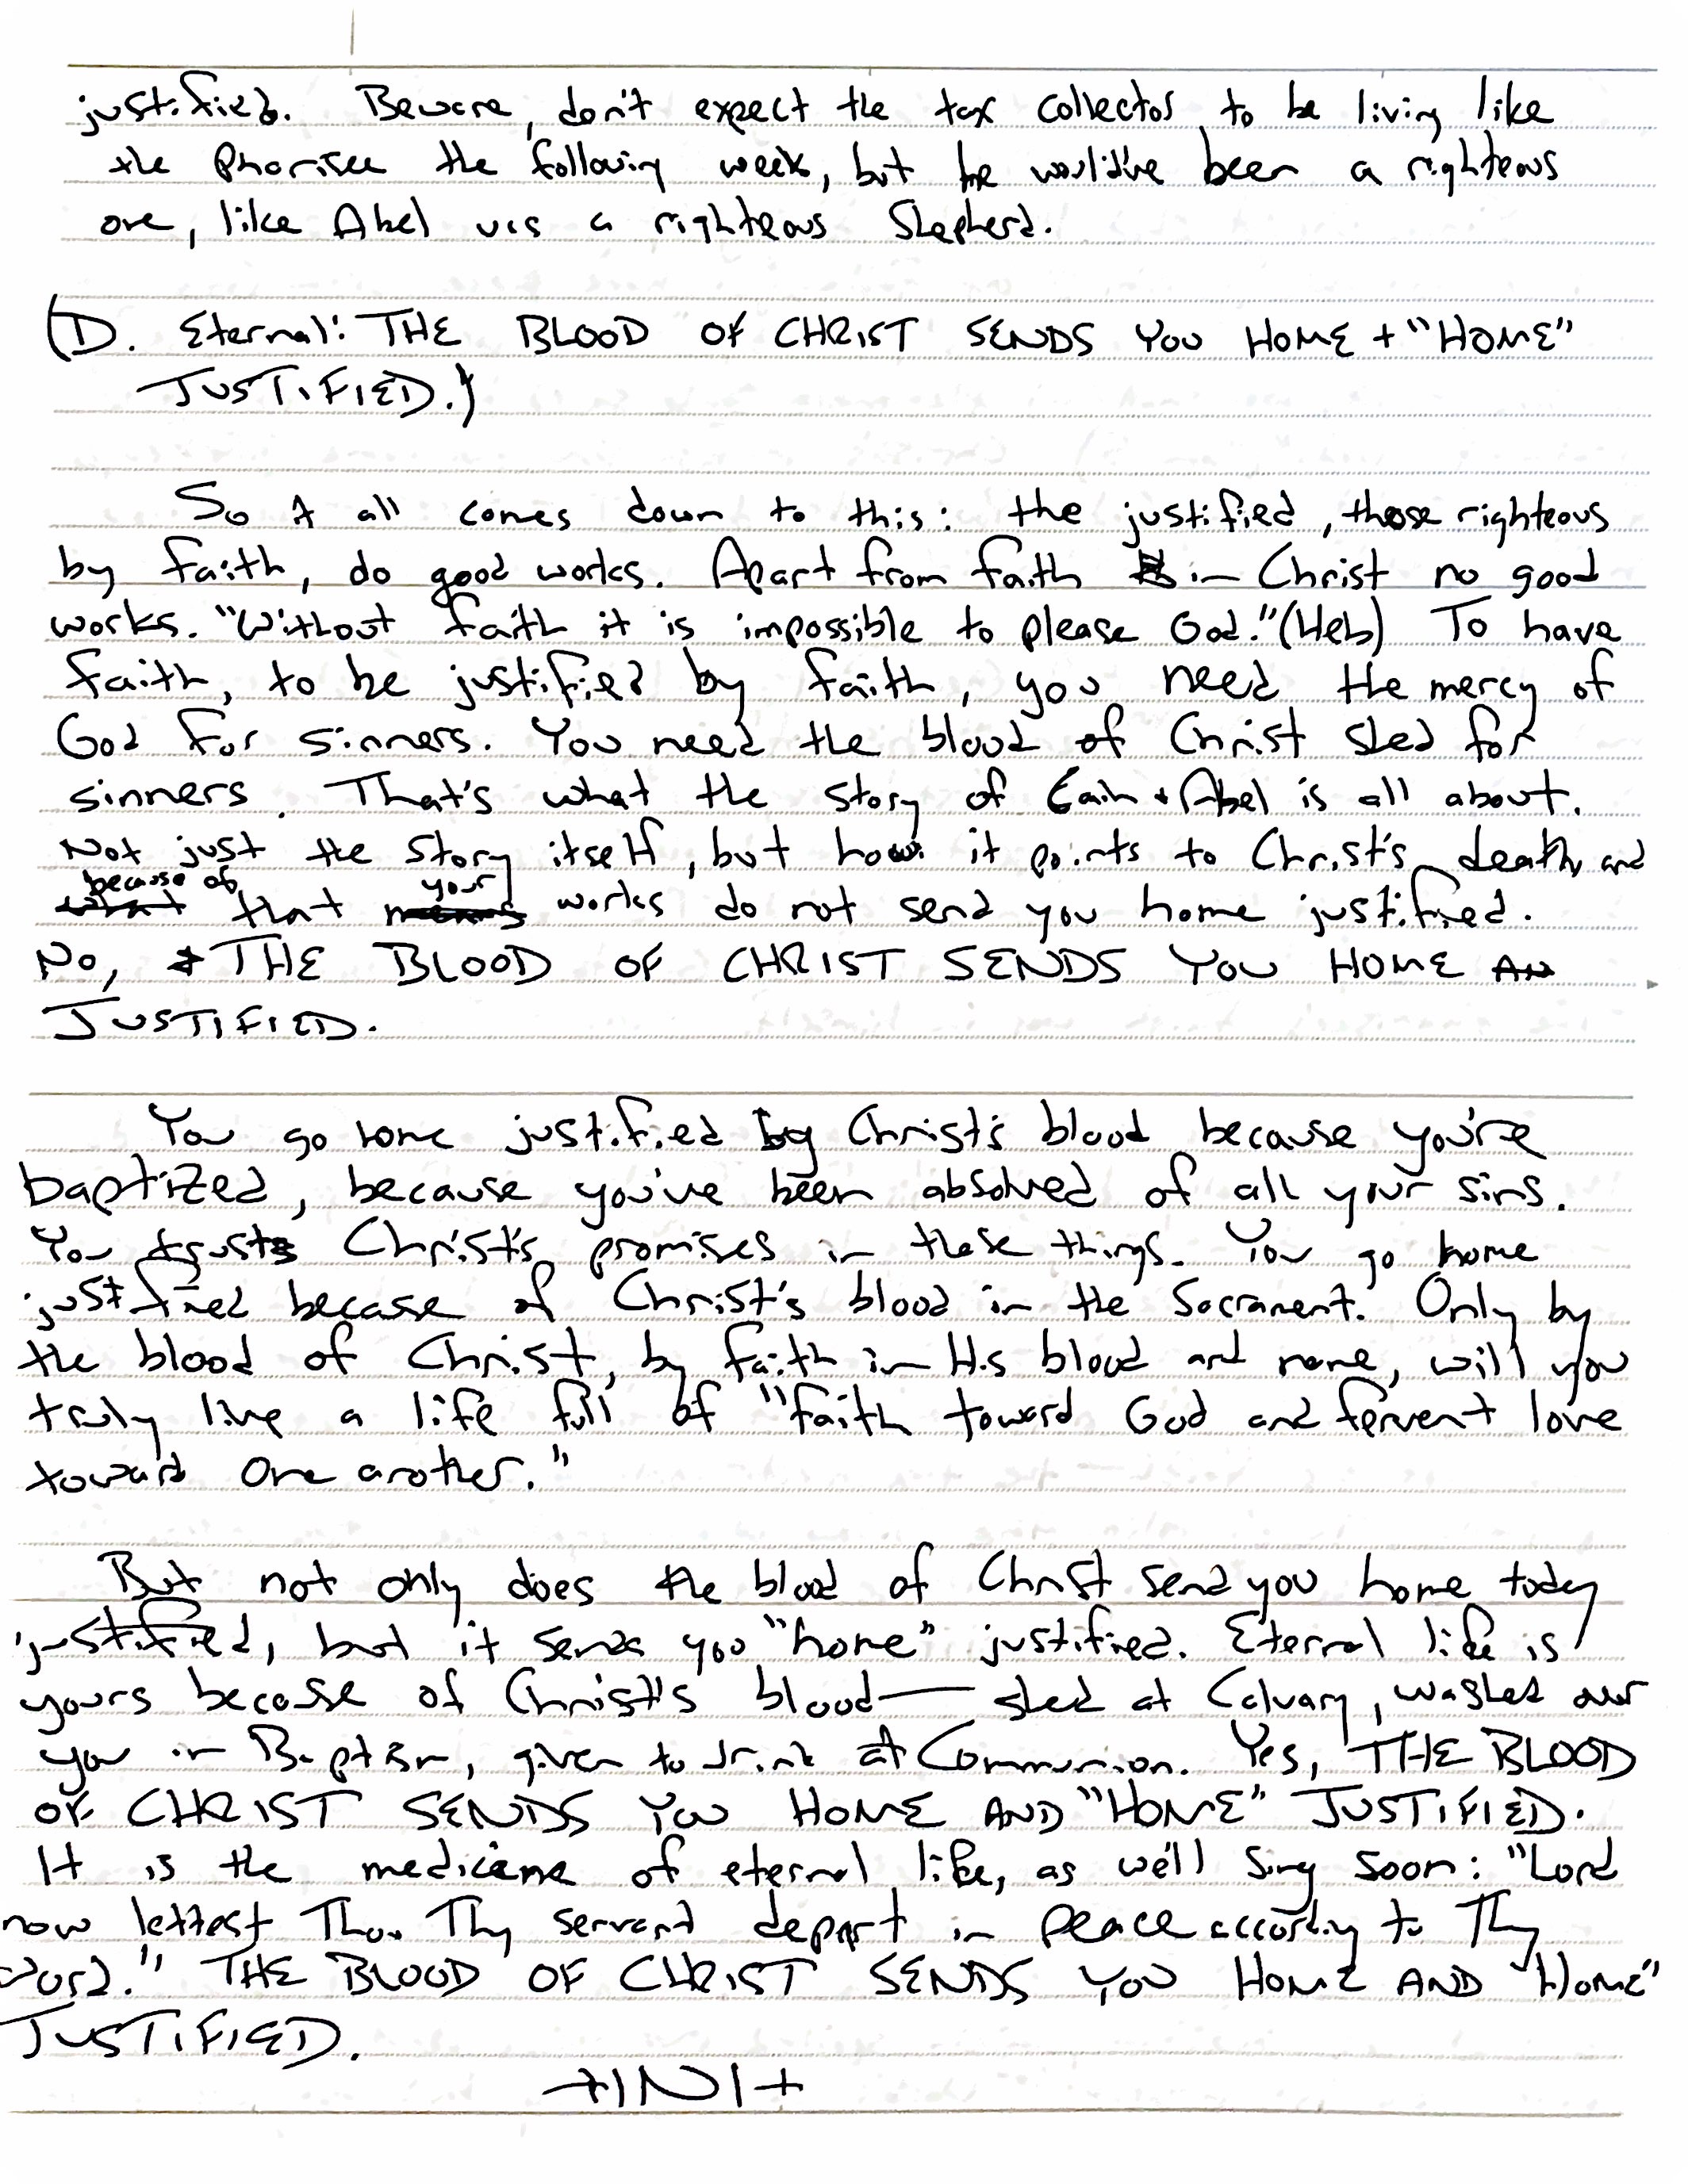 justified. Beware, don't expect the tax collector to be living like
the Pharisee the following week, but he would've been a righteous
one, like Abel was a righteous Shepherd.
(D. Eternal: THE BLOOD OF CHRIST SENDS YOU HOME + "HOME"
JUSTIFIED.)
So it all comes down to this: the justified, those righteous
by faith, do good works. Apart from faith in Christ no good
works. "Without faith it is impossible to please God." (Heb) To have
faith, to be justified by faith, you need the mercy of
God for sinners. You need the blood of Christ shed for
sinners. That's what the story of Cain + Abel is all about.
Not just the story itself, but how it points to Christ's death and
because of that your works do not send you home justified.
No, THE BLOOD OF CHRIST SENDS YOU HOME
JUSTIFIED.
You go home justified by Christ's blood because you're
baptized, because you've been absolved of all your sins.
You trust Christ's promises in these things. You go home
justified becase of Christ's blood in the Sacrament. Only by
the blood of Christ, by faith in His blood and name, will you
truly live a life full of "faith toward God and fervent love
toward one another."
But not only does the blood of Christ send you home today
justified, but it sends you "home" justified. Eternal life is
yours because of Christ's blood—shed at Calvary, washed over
you in Baptism, given to drink at Communion. Yes, THE BLOOD
OF CHRIST SENDS YOU HOME AND "HOME" JUSTIFIED.
It is the medicine of eternal life, as we'll sing soon: "Lord
now lettest Thou Thy servant depart in peace according to Thy
word." THE BLOOD OF CHRIST SENDS YOU HOME AND "HOME"
JUSTIFIED.
+INI+